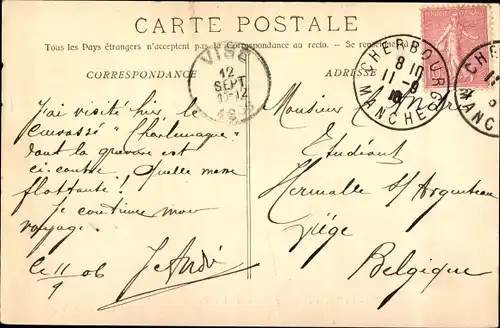 CARTE POSTALE
Tous les Pays étrangers n'acceptent pas la Correspondance au recto. — Se renseigner à la
CORRESPONDANCE
ADRESSE
VISÉ
12
SEPT
CHERBOURG
8 10
11-9
MANCHE
J'ai visité hier le
Cuirassé "Charlemagne"
dont la gravure est
ci-contre. Quelle masse
flottante!
Je continue mon
voyage.
le 11/9 06
J. André
Monsieur
Etudiant
Hermalle s/ Argenteau
Liége
Belgique